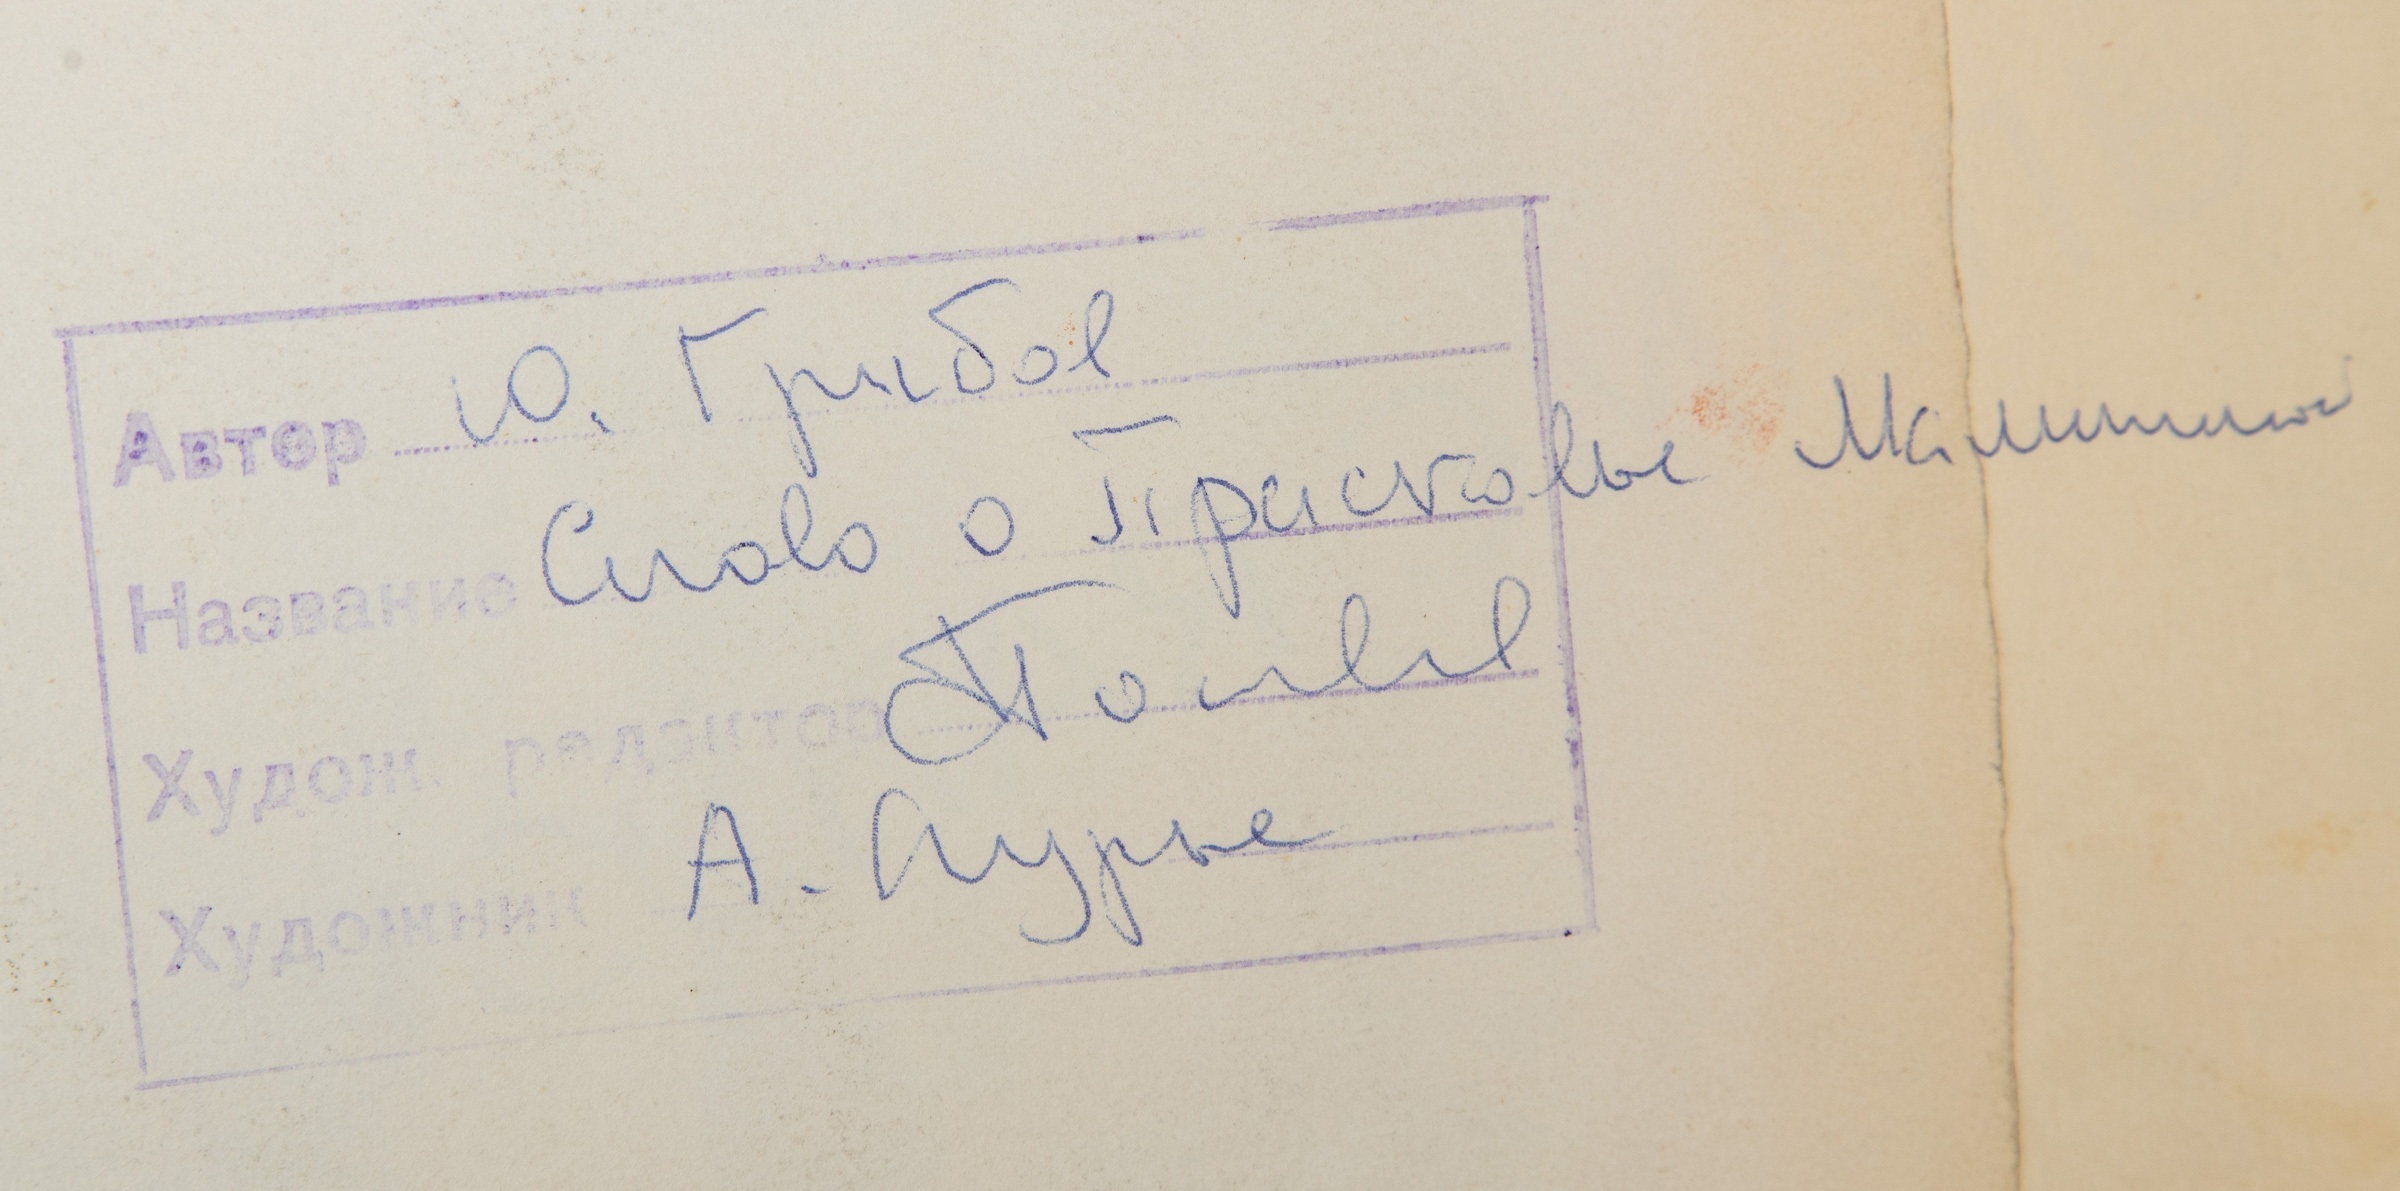 Автор Ю. Грибов
Название Слово о Прасковье Малининой
Худож. редактор
Художник А. Лурье